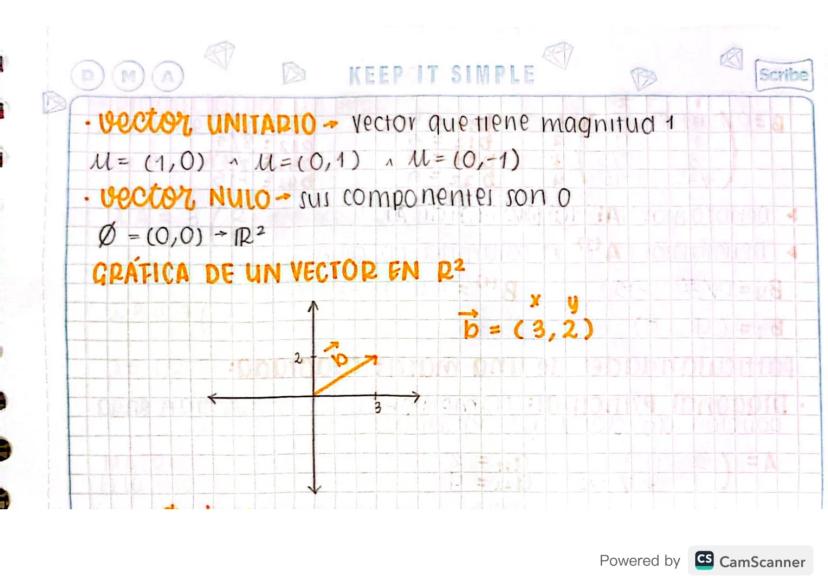 D M A KEEP IT SIMPLE Scribe
· vector UNITARIO → vector que tiene magnitud 1
μ = (1,0) ∧ μ = (0,1) ∧ μ = (0,-1)
· vector NULO → sus componentes son 0
Ø = (0,0) → ℝ²
GRÁFICA DE UN VECTOR EN R²
x y
b⃗ = (3,2)
2 b⃗
3
Powered by CS CamScanner